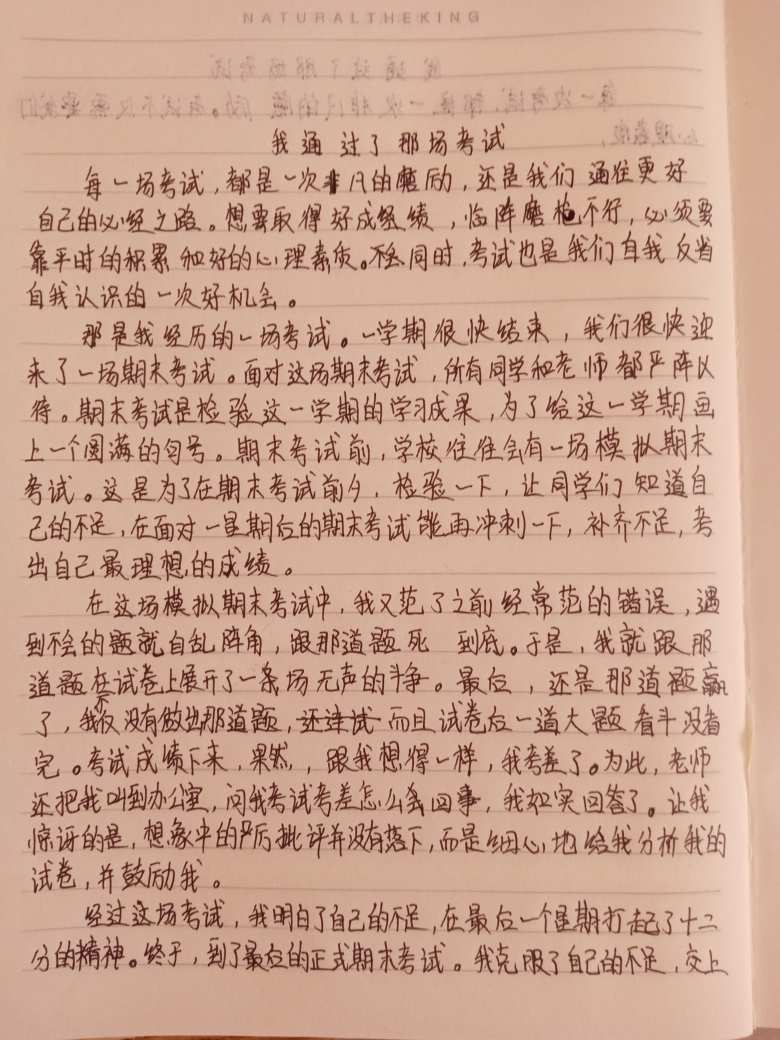 NATURALTHEKING
我通过了那场考试
每一场考试，都是一次非凡的磨励，还是我们通往更好
自己的必经之路。想要取得好成绩，临阵磨枪不行，必须要
靠平时的积累和好的心理素质。同时，考试也是我们自我反省
自我认识的一次好机会。
那是我经历的一场考试。一学期很快结束，我们很快迎
来了一场期末考试。面对这场期末考试，所有同学和老师都严阵以
待。期末考试是检验这一学期的学习成果，为了给这一学期画
上一个圆满的句号。期末考试前，学校往往会有一场模拟期末
考试。这是为了在期末考试前夕，检验一下，让同学们知道自
己的不足，在面对一星期后的期末考试能再冲刺一下，补齐不足，考
出自己最理想的成绩。
在这场模拟期末考试中，我又范了之前经常范的错误，遇
到不会的题就自乱阵角，跟那道题死 到底。于是，我就跟那
道题在试卷上展开了一场无声的斗争。最后，还是那道题赢
了，我不仅没有做出那道题，而且试卷后一道大题看斗没看
完。考试成绩下来，果然，跟我想得一样，我考差了。为此，老师
还把我叫到办公室，问我考试考差怎么回事，我如实回答了。让我
惊讶的是，想象中的严厉批评并没有落下，而是细心地给我分析我的
试卷，并鼓励我。
经过这场考试，我明白了自己的不足，在最后一个星期打起了十二
分的精神。终于，到了最后的正式期末考试。我克服了自己的不足，交上